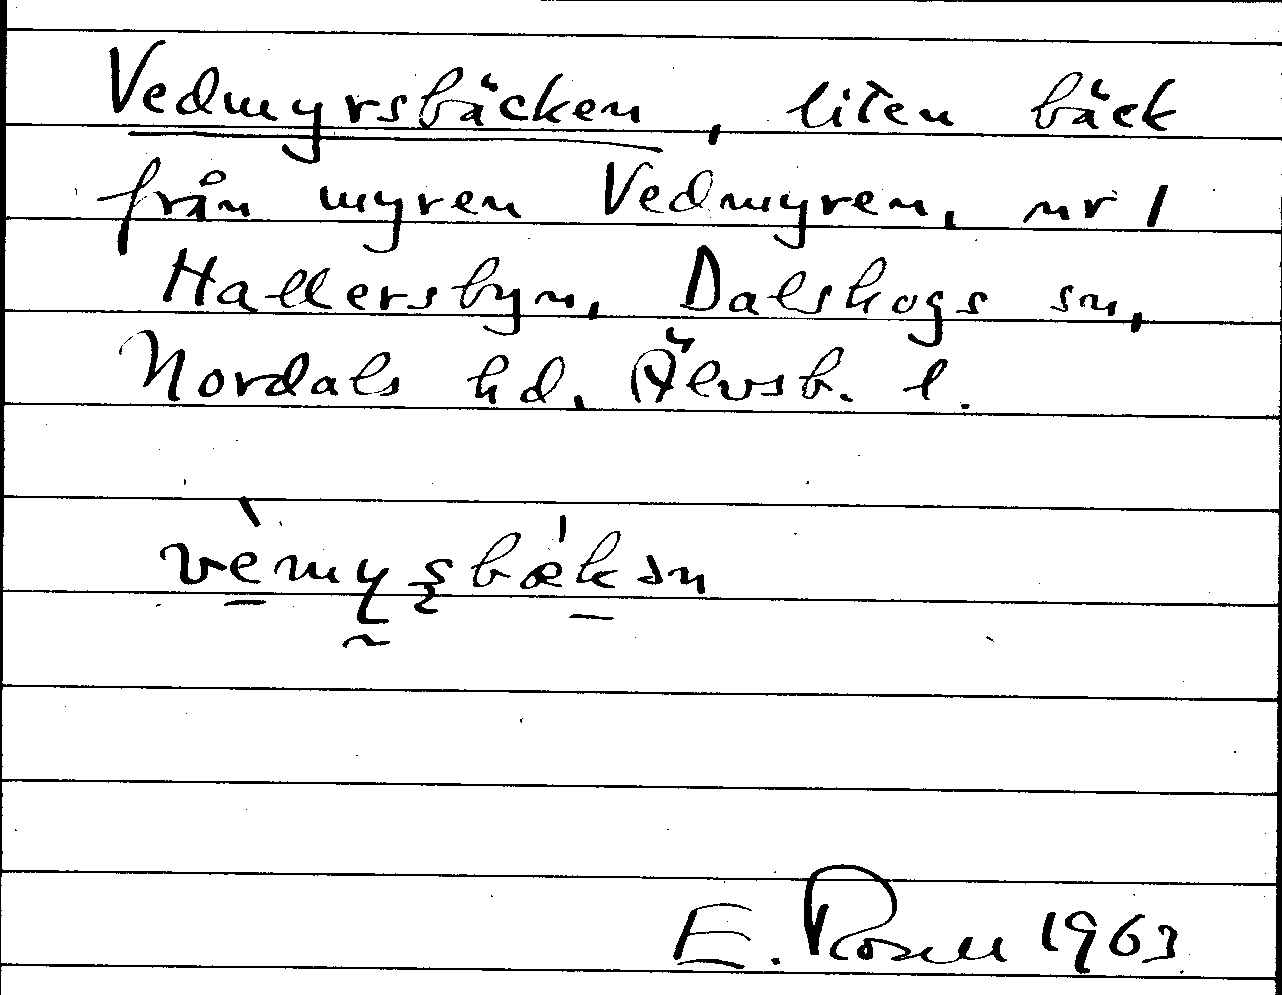 Vedmyrsbäcken, liten bäck
från myren Vedmyren, nr 1
Hallersbyn, Dalskogs sn,
Nordals hd. Älvsb. l.
vèmyʂbæ'kən
E. Rosell 1963